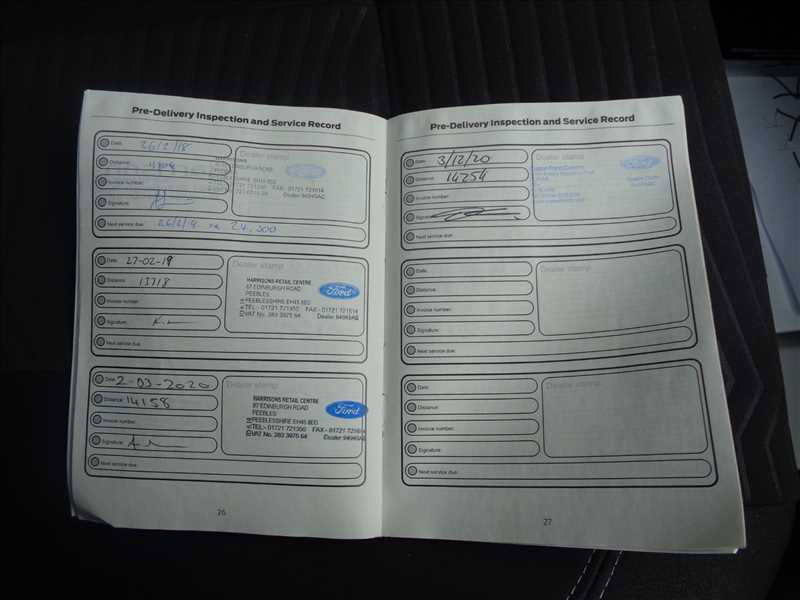 Pre-Delivery Inspection and Service Record
Date: 26/2/18
Distance:
Invoice number:
Signature:
Next service due: 26/2/19 24,300
Dealer stamp
Ford
FAX - 01721 721514
Dealer 94949AG
Date: 27-02-19
Distance: 13718
Invoice number:
Signature:
Next service due:
Dealer stamp
HARRISONS RETAIL CENTRE
97 EDINBURGH ROAD
PEEBLES
PEEBLESSHIRE EH45 8ED
TEL - 01721 721350 FAX - 01721 721514
VAT No. 383 3975 64 Dealer 94949AG
Ford
Date: 2-03-2020
Distance: 14158
Invoice number:
Signature:
Next service due:
Dealer stamp
HARRISONS RETAIL CENTRE
97 EDINBURGH ROAD
PEEBLES
PEEBLESSHIRE EH45 8ED
TEL - 01721 721350 FAX - 01721 721514
VAT No. 383 3975 64 Dealer 94949AG
Ford
26
Pre-Delivery Inspection and Service Record
Date: 3/12/20
Distance: 14254
Invoice number:
Signature:
Next service due:
Dealer stamp
Ford
Date:
Distance:
Invoice number:
Signature:
Next service due:
Dealer stamp
Date:
Distance:
Invoice number:
Signature:
Next service due:
Dealer stamp
27